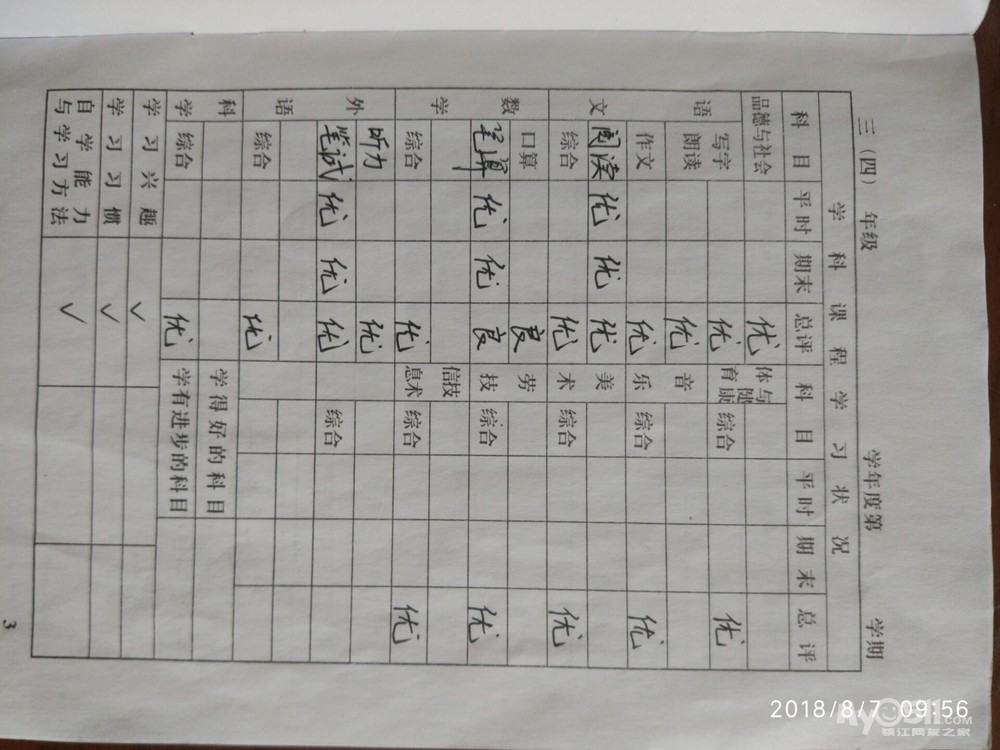 三（四） 年级 学年度第 学期
学 科 课 程 学 习 状 况
科 目 平 时 期末 总评 科 目 平 时 期 末 总 评
品德与社会 优 体育与健康
语文 写字 优 综合 优
朗读 优 音乐
作文 优 综合 优
阅读 优 优 优 美术
综合 优 综合 优
数学 口算 良 劳技
笔算 优 优 良 综合 优
信息技术
综合 优 综合 优
外语 听力 优
笔试 优 优 优 综合
综合 优
科学 学得好的科目
综合 优 学有进步的科目
学 习 兴 趣 ✓
学 习 习 惯 ✓
自 学 能 力
与 学 习 方 法 ✓
3
2018/8/7 09:56
.COM
镇江网友之家